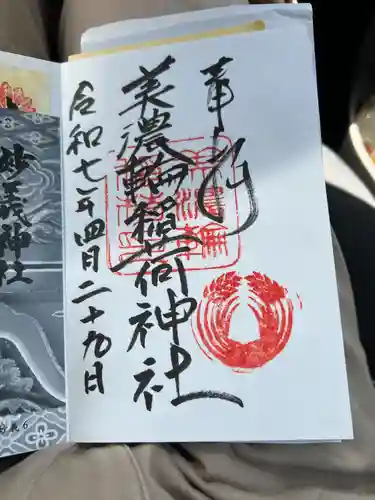 奉拝
美濃輪稲荷神社
令和七年四月二十九日
妙義神社